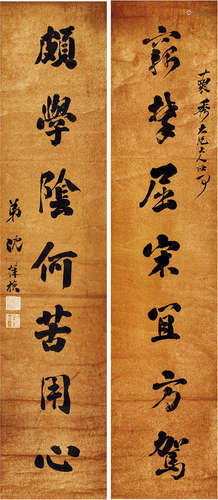 秀大兄大人
竊攀屈宋宜方駕
頗學陰何苦用心
弟沈葆楨